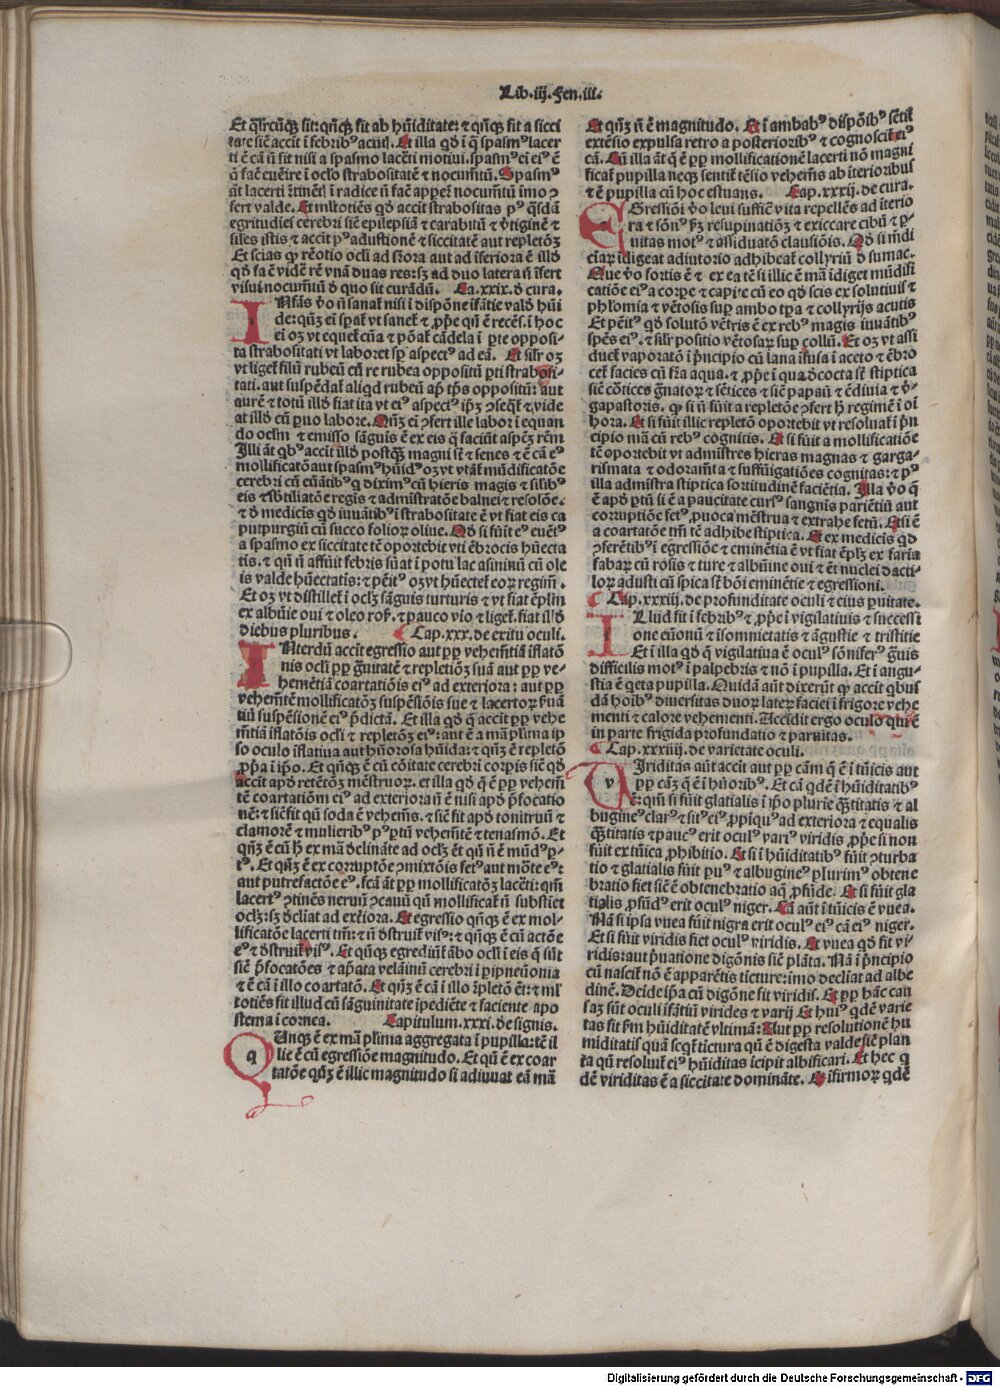 Lib.iij.Fen.iii.
Et qñcũqꝫ sit: qñqꝫ fit ab hũiditate: ⁊ qñqꝫ fit a sicci
tate siẽ accit ĩ febribꝰ acuĩ. Et illa qđ ĩ q̃ spasmꝰ lacer
ti ẽ cã ñ fit nisi a spasmo lacẽti motiui. spasmꝰ ei eiꝰ ẽ
Spasmꝰ
fert valde. Et mĩtotiẽs qđ accit strabositas pꝰ q̃sdã
egritudies cerebri siẽ epilepsiã ⁊
siles istis ⁊ accit pꝰ adustionẽ ⁊ siccitatẽ aut repletõꝫ
Et scias ꝙ rẽotio ocli ad ad inferiora ẽ illđ
qđ fa ẽ vidẽ rẽ vnã duas res: sꝫ ad duo latera ñ ĩfert
visui nocumẽtũ đ quo sit curãdũ. Ca.xxix.đ cura.
INfãs ꝟo ñ sanat nisi ĩ dispõne ĩfãtie valđ hũi
de: qñꝫ ei spat vt sanet ⁊ ꝓpẽ qñ ẽ recẽs. ĩ hoc
ei oꝫ vt equet cũa ⁊ põat cãdela ĩ pte opposi-
ta strabositati vt laboret sp aspectꝰ ad eã. Et silr oꝫ
vt liget filũ rubeũ cũ re rubea oppositũ pti strabosi-
tati. aut suspẽdat aliqđ rubeũ ap tps oppositũ: aut
aurẽ ⁊ totũ illđ fiat ita vt eiꝰ aspectꝰ ipꝫ ↄseqt ⁊ vide
at illđ cũ suo labore. Qñꝫ ei ↄfert ille labor ĩ equan
do oclm ⁊ emisso sãguis ẽ ex eis q̃ faciũt aspcꝫ rẽm
Illi ãt qbꝰ accit illđ postqꝫ magni st ⁊ senes ⁊ ẽ cã eꝰ
mollificatõ aut spasmꝰ hũidꝰ oꝫ vt vtãt mũdificatõe
cerebri cũ euãtibꝰ q̃ diximꝰ cũ hieris magis ⁊ silibꝰ
eis ⁊ sbtiliatõe regis ⁊ admistratõe balnei ⁊ resolõe.
⁊ đ medicis qđ iuuãtibꝰ ĩ strabositate ẽ vt fiat eis ca
putpurgiũ cũ succo folioꝝ oliue. Qđ si fũit eꝰ euẽtꝰ
a spasmo ex siccitate tẽ oportebit vti ẽbrocis hũecta
tis. ⁊ qñ ñ affuit febris sũat ĩ potu lac asininũ cũ ole
is valde hũectatis: ⁊ pẽitꝰ oꝫ vt hũectet eoꝝ regim̃.
Et oꝫ vt distillet ĩ oclꝫ sãguis turturis ⁊ vt fiat ẽplm
ex albuĩe oui ⁊ oleo roꝝ. ⁊ pauco vĩo ⁊ liget. fiat illđ
diebus pluribus. Cap.xxx.de exitu oculi.
INterdũ accit egressio aut pp vehemẽtiã ĩflatõ
nis ocli pp gͣuitatẽ ⁊ repletiõꝫ suã aut pp ve-
hemẽtiã coartatiõis eiꝰ ad exteriora: aut pp
vehemẽtẽ mollificatõꝫ suspẽsiõis sue ⁊ lacertoꝝ ꝓuã
tiũ suspẽsionẽ eiꝰ pdictã. Et illa qđ q̃ accit pp vehe
mẽtiã ĩflatõis ocli ⁊ repletõꝫ eiꝰ: aut ẽ a mã plima ip
so oculo ĩflatiua aut hũorosa hũida: ⁊ qñꝫ ẽ repletõ
ꝓpͣa ĩ ipo. Et qñqꝫ ẽ cũ cõitate cerebri corpis siẽ qđ
accit apđ retẽtõꝫ mẽstruoꝝ. et illa qđ q̃ ẽ pp vehem̃
tẽ coartatiõm eiꝰ ad exteriora ñ ẽ nisi apđ pfocatio
nẽ: ⁊ siẽ fit qñ soda ẽ vehem̃s. ⁊ siẽ fit apđ tonitruũ ⁊
clamorẽ ⁊ mulieribꝰ pꝰ ptũ vehemẽtẽ ⁊ tenasmõ. Et
qñꝫ ẽ cũ ħ ex mã đclinãte ad oclꝫ ẽt qñ ñ ẽ mũdꝰ p-
tꝰ. Et qñꝫ ẽ ex corruptõe ↄmixtõis fetꝰ aut mõte eꝰ:
aut putrefactõe eꝰ. scđa ãt pp mollificatõꝫ lacẽti: qm̃
lacertꝰ ↄtinẽs neruũ ↄcauũ qñ mollificat ñ substiet
oclꝫ: sꝫ đcliat ad exteriora. Et egressio qñqꝫ ẽ ex mol-
lificatõe lacerti tm̃: ⁊ ñ đstruit visꝰ: ⁊ qñqꝫ ẽ cũ actõe
eꝰ ⁊ đstruit visꝰ. Et qñqꝫ egrediũt ãbo ocli ĩ eis q̃ sũt
siẽ pfocatões ⁊ apãta velãinũ cerebri ĩ pipneũonia
⁊ ẽ cã ĩ illo coartatõ. Et qñꝫ ẽ cã ĩ illo ĩpletõ ẽt: ⁊ ml
totiẽs fit illud cũ sãguinitate ĩpediẽte ⁊ faciente apo
stema ĩ cornea. Capitulum.xxxi.de signis.
QUnqꝫ ẽ ex mã plima aggregata ĩ pupilla: tẽ il
lic ẽ cũ egressiõe magnitudo. Et qñ ẽ ex coar
tatõe qñꝫ ẽ illic magnitudo si adiuuat eã mã
Et qñꝫ ñ ẽ magnitudo. Et ĩ ambabꝰ dispõibꝰ sẽtit
extẽsio expulsa retro a posterioribꝰ ⁊ cognoscit eiꝰ
cã. Cũ illa ãt q̃ ẽ pp mollificationẽ lacerti nõ magni
ficat pupilla neqꝫ sentit tẽsio vehem̃s ab ĩterioribus
⁊ ẽ pupilla cũ hoc estuans. Cap.xxxij.de cura.
EGressiõi ꝟo leui suffic̃ vita repellẽs ad ĩterio
ra ⁊ sõnꝰ resupinatiõꝫ ⁊ exiccare cibũ ⁊ p-
uitas motꝰ ⁊ assiduatõ clausiõis. Qđ si ĩmđi
ciaꝝ ĩdigeat adiutorio adhibeat collyriũ đ sumac.
Que ꝟo fortis ẽ ⁊ ex ea tẽ si illic ẽ mã ĩdiget mũdifi
catiõe eiꝰ a corpe ⁊ capite cũ eo qđ scis ex solutiuis ⁊
phlomia ⁊ vẽtosis sup ambo tpa ⁊ collyrijs acutis
Et pẽitꝰ qđ solutõ vẽtris ẽ ex rebꝰ magis iuuãtibꝰ
spẽs eiꝰ. ⁊ silr positio vẽtosaꝝ sup collũ. Et oꝫ vt assi
duet vaporatõ ĩ pncipio cũ lana ĩfusa ĩ aceto ⁊ ẽbro
cet facies cũ frĩa aqua. ⁊ ꝓpẽ ĩ qua đcocta st stiptica
siẽ cõtices gͣnatoꝝ ⁊ sẽtices ⁊ siẽ papaũ ⁊ ẽdiuia ⁊ ꝟ-
gapastoris. ꝙ si ñ fuit a repletõe ↄfert ħ regimẽ ĩ oĩ
hora. Et si fuit illic repletõ oportebit vt resoluat ĩ pn
cipio mã cũ rebꝰ cognitis. Et si fuit a mollificatiõe
tẽ oportebit vt admistres hieras magnas ⁊ garga-
rismata ⁊ odoramẽta ⁊ suffũigatiões cognitas: ⁊ pꝰ
illa admistra stiptica fortitudinẽ faciẽtia. Illa ꝟo q̃
ẽ apđ ptũ si ẽ a paucitate cursꝰ sanguis pariẽtiũ aut
corruptiõe fetꝰ, ꝓuoca mẽstrua ⁊ extrahe fetũ. Et si ẽ
a coartatõe tm̃ tẽ adhibe stiptica. Et ex medicis qđ
ↄferẽtibꝰ ĩ egressiõe ⁊ eminẽtia ẽ vt fiat ẽplꝫ ex faria
fabaꝝ cũ rosis ⁊ ture ⁊ albuĩne oui ⁊ ẽt nuclei dacti-
loꝝ adusti cũ spica st bõi eminẽtie ⁊ egressioni.
Cap.xxxiij.de profunditate oculi ⁊ eius puitate.
ILlud fit ĩ febribꝰ ⁊ ꝓpẽ ĩ vigilatiuis ⁊ successi
one euõnũ ⁊ ĩsomnietatis ⁊ ãgustie ⁊ tristitie
Et ĩ illa qđ q̃ vigilatiua ẽ oculꝰ sõniferꝰ gͣuis
difficilis motꝰ ĩ palpebris ⁊ nõ ĩ pupilla. Et ĩ angu-
stia ẽ qeta pupilla. Quidã aũt dixerũt ꝙ accit qbus
dã hoibꝰ diuersitas duoꝝ lateꝝ faciei ĩ frigore vehe
menti ⁊ calore vehementi. Accidit ergo oculo qui ẽ
in parte frigida profundatio ⁊ paruitas.
Cap.xxxiiij.de varietate oculi.
VIriditas aũt accit aut pp cãm q̃ ẽ ĩ tũicis aut
pp cãꝫ q̃ ẽ ĩ hũoribꝰ. Et cã qdẽ ĩ hũiditatibꝰ
ẽ: qñ si fuit glatialis ĩ ipo plurie q̃titatis ⁊ al
bugineꝰ clarꝰ ⁊ sitꝰ eiꝰ, ꝓpĩquꝰ ad exteriora ⁊ equalis
q̃titatis ⁊ paucꝰ erit oculꝰ variꝰ viridis ꝓpẽ si non
fuit ex tũica ꝓhibitio. Et si ĩ hũiditatibꝰ fuit ↄturba
tio ⁊ glatialis fuit puꝰ ⁊ albugineꝰ plurimꝰ obtene
bratio fiet siẽ ẽ obtenebratio aq̃ ꝓfũde. Et si fuit gla
tialis ꝓfũdꝰ erit oculꝰ niger. Cã aũt ĩ tũicis ẽ vuea.
Nã si ipsa vuea fuit nigra erit oculꝰ eiꝰ cã eiꝰ niger.
Et si fuit viridis fiet oculꝰ viridis. Et vuea qđ fit vi-
ridis: aut puatione digõnis siẽ plãta. Nã ĩ pncipio
cũ nascit nõ ẽ apparẽtis tĩcture: imo decliat ad albe
dinẽ. Deĩde ipa cũ digõne fit viridis. Et pp hãc cau
saꝫ sũt oculi ĩfãtiũ virides ⁊ varij Et huiꝰ qdẽ varie
tas fit fm hũiditatẽ vltimã: Aut pp resolutionẽ hu
miditatis quã seqt tĩctura qñ ẽ digesta valde siẽ plan
ta qñ resoluit eiꝰ hũiditas ĩcipit albificari. Et hec q
dẽ viriditas ẽ a siccitate dominãte. Et ĩfirmoꝝ qdẽ
Digitalisierung gefördert durch die Deutsche Forschungsgemeinschaft - DFG